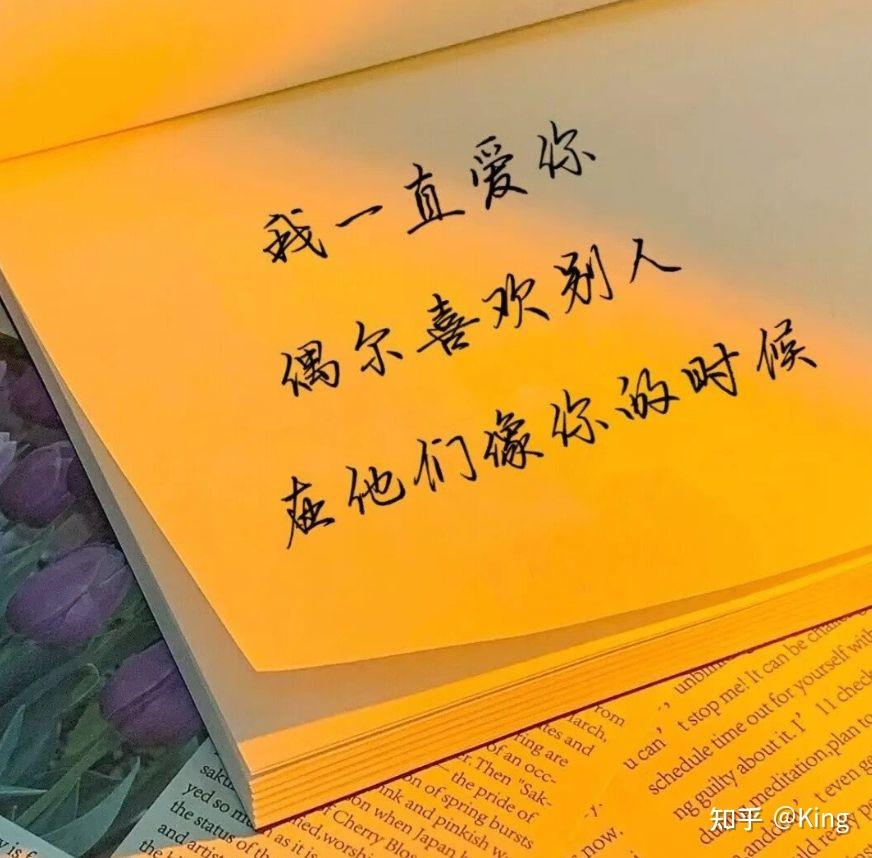 我一直爱你
偶尔喜欢别人
在他们像你的时候
rom
larch,
es and
fing are
of an occ-
er. Then "Sak-
the pride of
on of spring bursts
ink and pinkish w
on when Japan
f Cherry Blos
saku
yed so m
the status of
as it is
and artis
ated, worshi
unbli
It can be cha
u can't stop me!
schedule time out for yourself with
ng guilty about it. I'll check
meditation, plan to
even ge
now.
知乎 @King